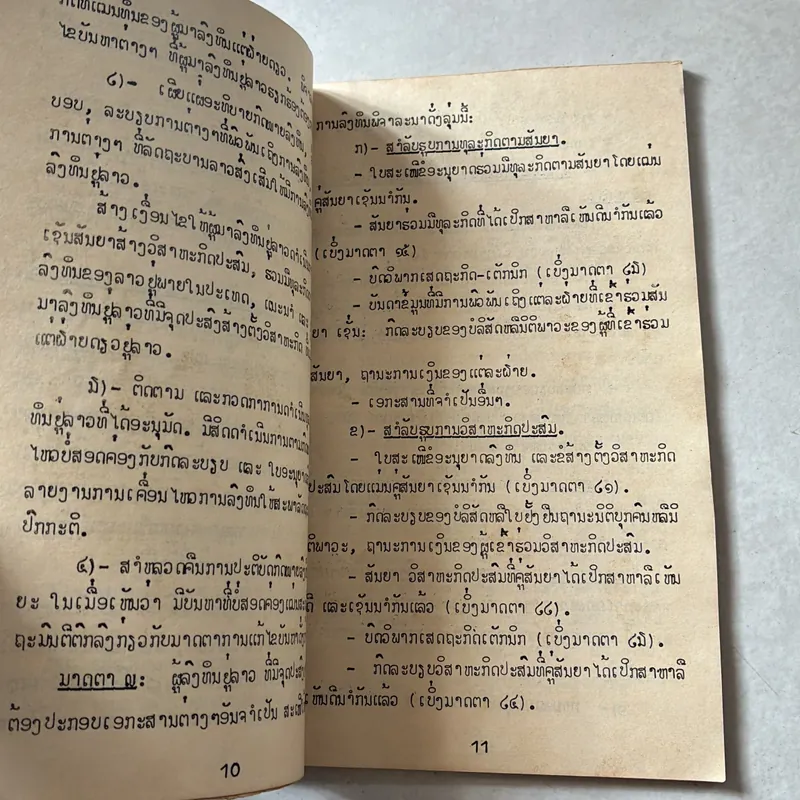 ໄຂບັນຫາຕ່າງໆ ທີ່ຜູ້ມາລົງທຶນຢູ່ລາວຮຽກຮ້ອງ
໒)- ເຜີຍແຜ່ອະທິບາຍກົດໝາຍລົງທຶນ,
ບອບ, ລະບຽບການຕ່າງໆທີ່ພົວພັນເຖິງການລົງທຶນ
ການຕ່າງໆ ທີ່ລັດຖະບານລາວສົ່ງເສີມໃຫ້ມີການ
ລົງທຶນຢູ່ລາວ.
ສ້າງເງື່ອນໄຂໃຫ້ຜູ້ມາລົງທຶນຢູ່ລາວດຳເນີນ
ເຊັນສັນຍາສ້າງວິສາຫະກິດປະສົມ, ຮ່ວມມືທຸລະກິດ
ລົງທຶນຂອງລາວຢູ່ພາຍໃນປະເທດ, ແນະນຳ
ມາລົງທຶນຢູ່ລາວທີ່ມີຈຸດປະສົງສ້າງຕັ້ງວິສາຫະກິດ
ແຕ່ຝ່າຍດຽວຢູ່ລາວ.
໓)- ຕິດຕາມ ແລະກວດກາການດຳເນີນ
ທຶນຢູ່ລາວທີ່ໄດ້ອະນຸມັດ. ມີສິດດຳເນີນການຕາມ
ໄຫວບໍ່ສອດຄ່ອງກັບກົດລະບຽບ ແລະ ໃບອະນຸຍາດ
ລາຍງານການເຄື່ອນໄຫວການລົງທຶນໃຫ້ສະພາ
ປົກກະຕິ.
໔)- ສຳຫຼວດຄືນການປະຕິບັດກົດໝາຍ
ຍະ ໃນເມື່ອເຫັນວ່າ ມີບັນຫາທີ່ບໍ່ສອດຄ່ອງ
ຖະມົນຕີຕົກລົງກ່ຽວກັບມາດຕາການແກ້ໄຂບັນຫາ
ມາດຕາ ໗: ຜູ້ລົງທຶນຢູ່ລາວ ທີ່ມີຈຸດປະສົງ
ຕ້ອງປະກອບເອກະສານຕ່າງໆອັນຈຳເປັນ
10
ການລົງທຶນພິຈາລະນາດັ່ງລຸ່ມນີ້:
ກ)- ສຳລັບຮູບການທຸລະກິດຕາມສັນຍາ.
- ໃບສະເໜີຂໍອະນຸຍາດຮ່ວມມືທຸລະກິດຕາມສັນຍາໂດຍແມ່ນ
ຄູ່ສັນຍາເຊັນນຳກັນ.
- ສັນຍາຮ່ວມມືທຸລະກິດທີ່ໄດ້ເປິກສາຫາລືເຫັນດີນຳກັນແລ້ວ
(ເບິ່ງມາດຕາ ໑໕)
- ບົດວິພາກເສດຖະກິດ-ເຕັກນິກ (ເບິ່ງມາດຕາ ໔໓)
- ບັນດາຂໍ້ມູນທີ່ມີການພົວພັນເຖິງແຕ່ລະຝ່າຍທີ່ເຂົ້າຮ່ວມສັນ
ຍາ ເຊັ່ນ: ກົດລະບຽບຂອງບໍລິສັດຫລືນິຕິພາວະຂອງຜູ້ທີ່ເຂົ້າຮ່ວມ
ສັນຍາ, ຖານະການເງິນຂອງແຕ່ລະຝ່າຍ.
- ເອກະສານທີ່ຈຳເປັນອື່ນໆ.
ຂ)- ສຳລັບຮູບການວິສາຫະກິດປະສົມ.
- ໃບສະເໜີຂໍອະນຸຍາດລົງທຶນ ແລະຂໍສ້າງຕັ້ງວິສາຫະກິດ
ປະສົມໂດຍແມ່ນຄູ່ສັນຍາເຊັນນຳກັນ (ເບິ່ງມາດຕາ ໔໑).
- ກົດລະບຽບຂອງບໍລິສັດຫລືໃບຢັ້ງຢືນຖານະນິຕິບຸກຄົນຫລືນິ
ຕິພາວະ, ຖານະການເງິນຂອງຜູ້ເຂົ້າຮ່ວມວິສາຫະກິດປະສົມ.
- ສັນຍາ ວິສາຫະກິດປະສົມທີ່ຄູ່ສັນຍາໄດ້ເປິກສາຫາລືເຫັນ
ດີ ແລະເຊັນນຳກັນແລ້ວ (ເບິ່ງມາດຕາ ໔໔).
- ບົດວິພາກເສດຖະກິດເຕັກນິກ (ເບິ່ງມາດຕາ ໔໓).
- ກົດລະບຽບວິສາຫະກິດປະສົມທີ່ຄູ່ສັນຍາໄດ້ເປິກສາຫາລື
ເຫັນດີນຳກັນແລ້ວ (ເບິ່ງມາດຕາ ໔໔).
11